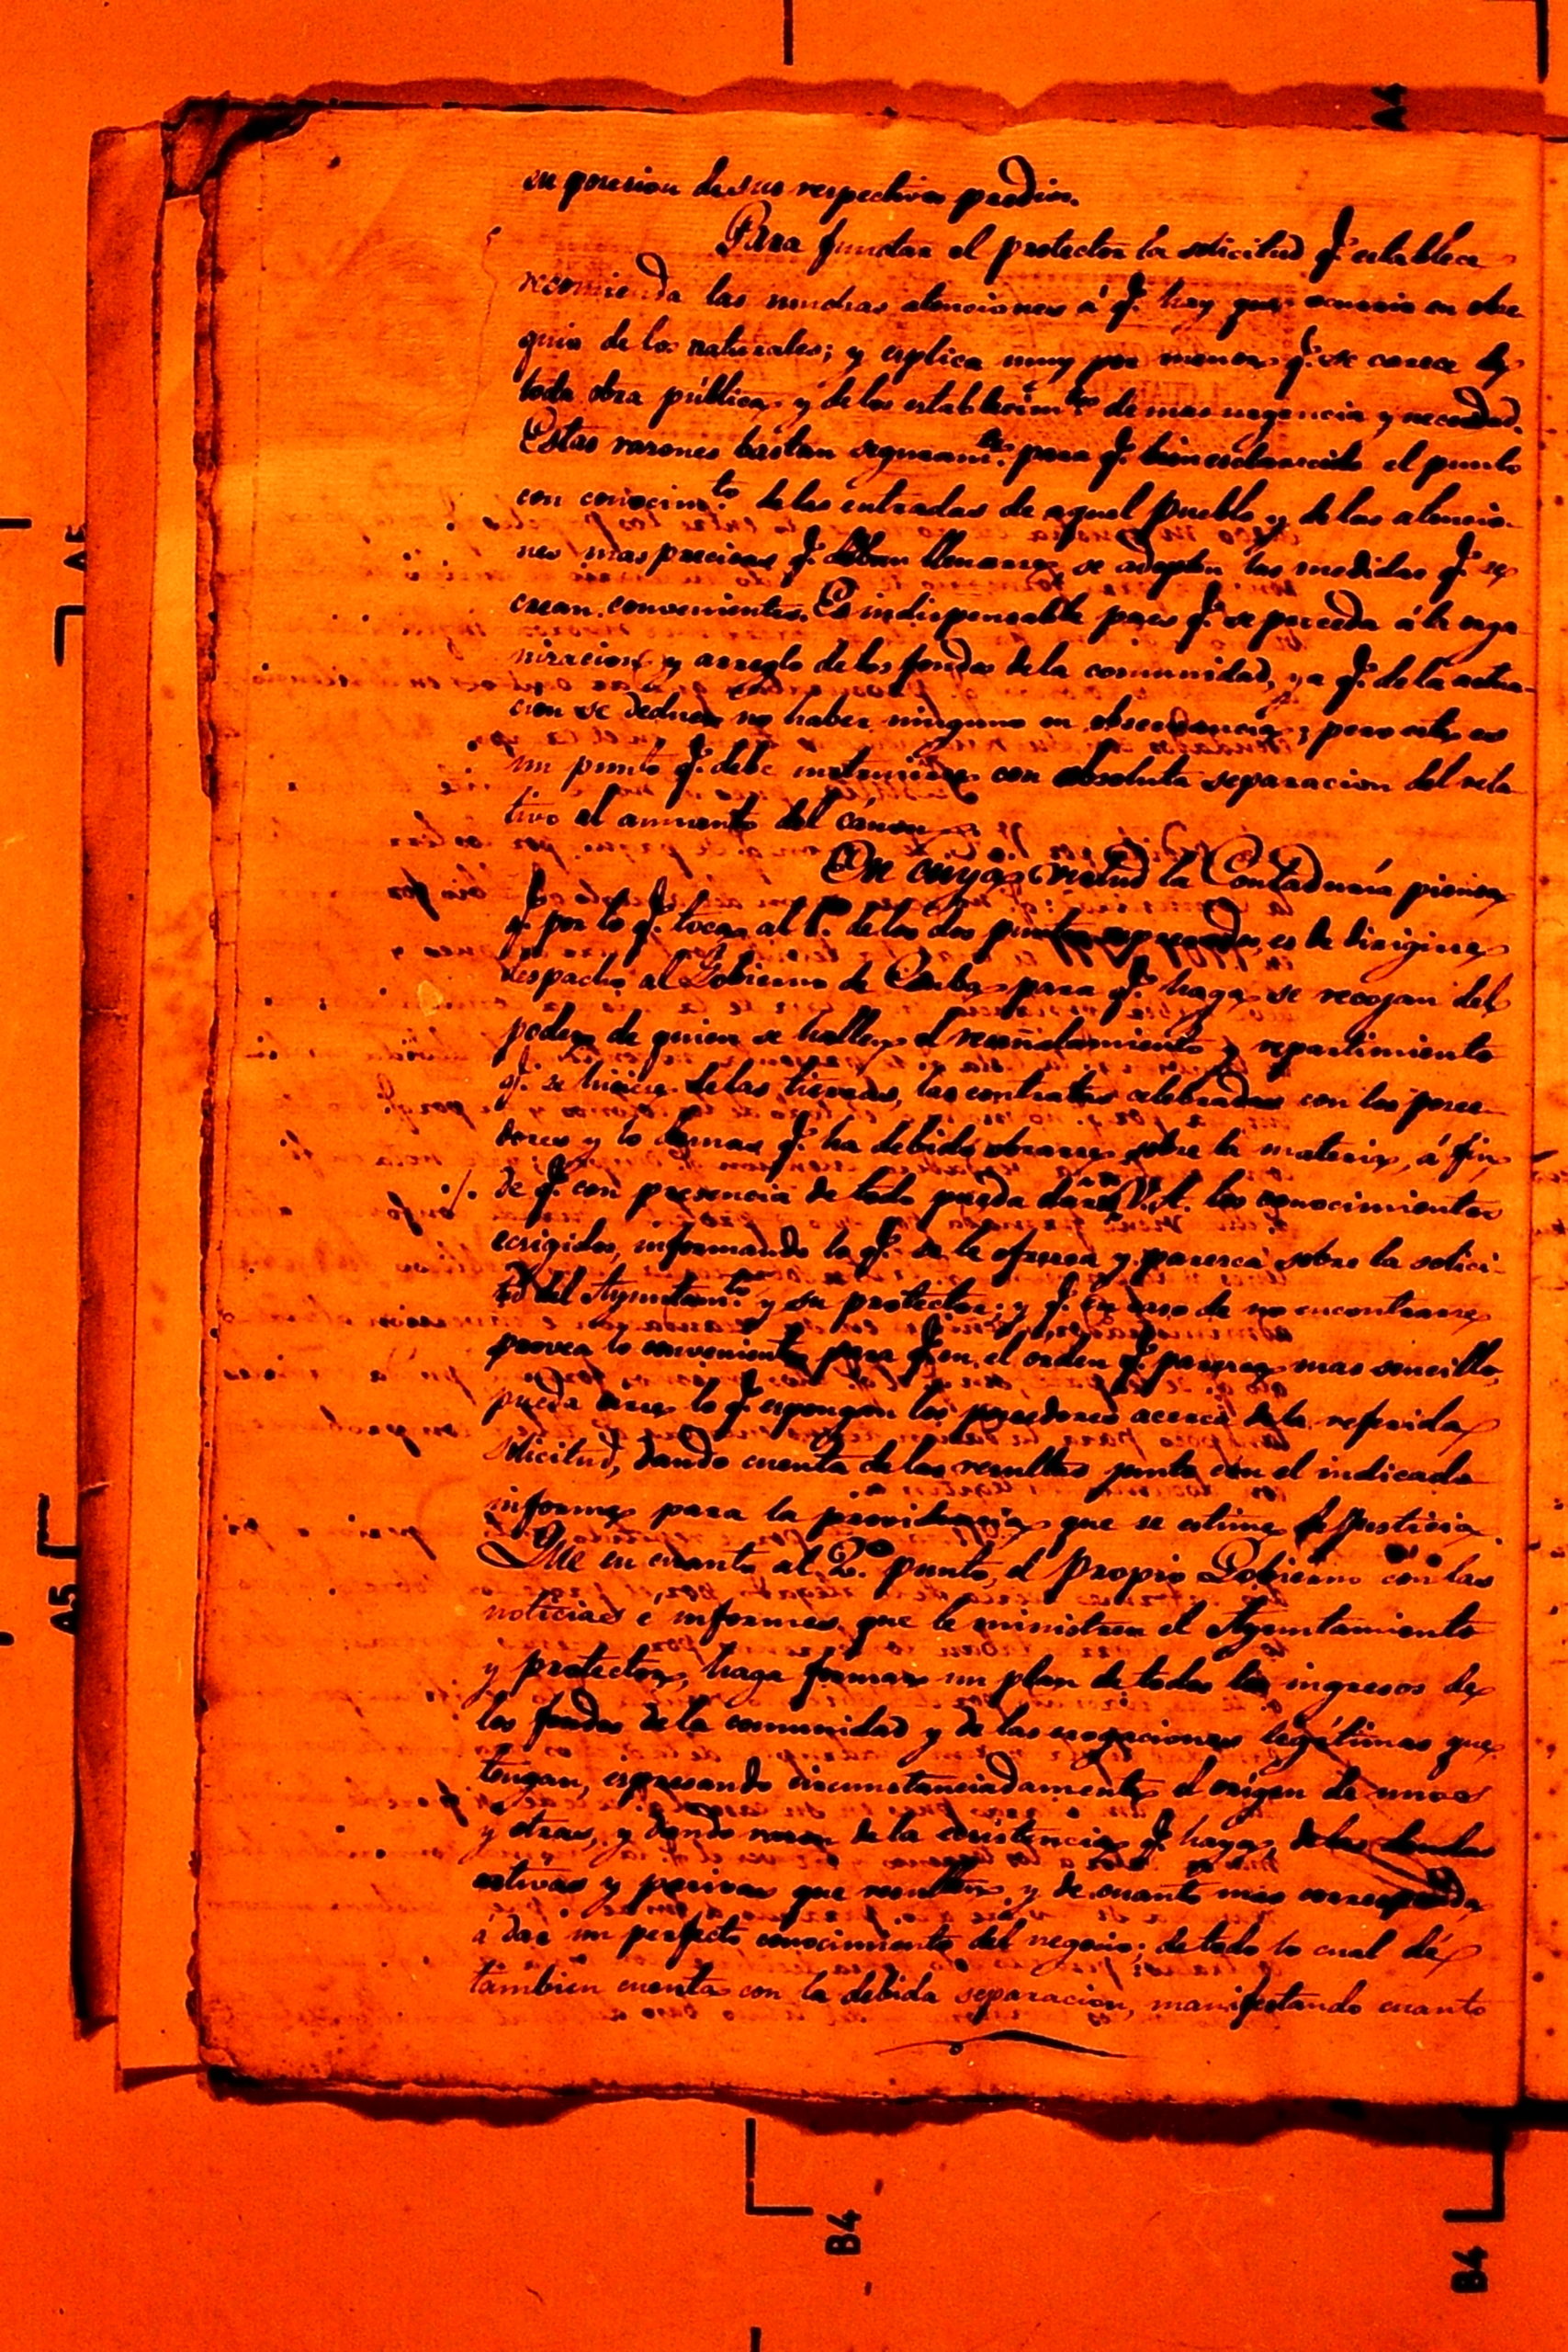 su posesion de sus respectivos predios.
Para fundar el protector la solicitud q.e establece
recomienda las muchas atenciones á q.e hay que ocurrir en obse
quio de los naturales; y esplica muy por menor q.e se carece de
toda obra pública, y de los establecim.tos de mas urgencia y necesidad.
Estas razones bastan seguram.te para q.e bien esclarecido el punto
con conocim.to de las entradas de aquel Pueblo y de las atencio-
nes mas precisas q.e deban llenarse, se adopten las medidas q.e se
crean convenientes. Es indispensable pues q.e se proceda á la orga
nizacion y arreglo de los fondos de la comunidad, ya q.e de la actua-
cion se deduce no haber ninguno en observancia; pero este es
un punto q.e debe instruirse con absoluta separacion del rela
tivo al aumento del cánon.
En cuya virtud la Contaduría piensa
q.e por lo q.e toca al 1.o de los dos puntos espresados, es de dirigirse
despacho al Gobierno de Cuba para q.e haga se recojan del
poder de quien se hallen el reseñalamiento y repartimiento
q.e se hiciere de las tierras, las contratas celebradas con los posee-
dores y lo demas q.e ha debido obrarse sobre la materia, á fin
de q.e con presencia de todo pueda darse á V.A. los conocimientos
ecsigidos, informando lo q.e se le ofrezca y parezca sobre la solici-
tud del Ayuntam.to y su protector; y q.e en caso de no encontrarse
provea lo conveniente para q.e en el orden q.e parezca mas sencillo,
pueda oirse lo q.e espongan los poseedores acerca de la referida
solicitud, dando cuenta de las resultas junto con el indicado
informe para la providencia que se estime de Justicia.
Que en cuanto al 2.o punto, el propio Gobierno con las
noticias é informes que le ministren el Ayuntamiento
y protector, haga formar un plan de todos los ingresos de
los fondos de la comunidad y de las erogaciones legítimas que
tengan, espresando circunstanciadamente el orígen de unos
y otras, y dando razon de la ecsistencia q.e haya, de las deudas
activas y pasivas que resulten, y de cuanto mas corresponda
á dar un perfecto conocimiento del negocio; de todo lo cual dé
tambien cuenta con la debida separacion, manifestando cuanto
A5
A5
B4
B4